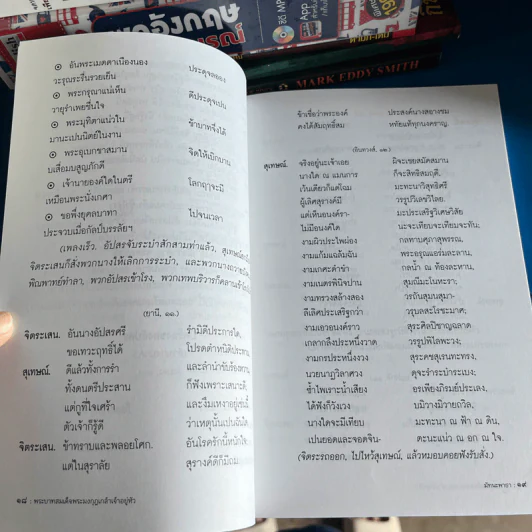 อังกฤษ
MARK EDDY SMITH
๏ อันพระเมตตาเนืองนอง ประดุจลออง
วะรุณระรื่นรวยเย็น
๏ พระกรุณาแน่เห็น ดีประดุจเปน
วายุรำเพยชื่นใจ
๏ พระมุทิตาแน่วใน ข้าบาทจึ่งได้
มานะเปนนิตย์ในงาน
๏ พระอุเบกขาสมาน จิตให้เบิกบาน
บเสื่อมบสูญภักดี
๏ เจ้านายองค์ใดในตรี โลกฤๅจะมี
เหมือนพระนั่งเกศา
๏ ขอพึ่งยุคลบาทา ไปจนเวลา
ประจวบเมื่อกัลป์บรรลัยฯ
(เพลงเร็ว. อัปสรจับระบำสักสามท่าแล้ว, สุเทษณ์
จิตระเสนก็สั่งพวกนางให้เลิกการระบำ, และพวกนาง
พิณพาทย์ทำลา, พวกอัปสรเข้าโรง,
(ยานี, ๑๑.)
จิตระเสน. อันนางอัปสรศรี รำมิดีประการใด,
ขอเทวะฤทธิ์ได้ โปรดตำหนิดี
สุเทษณ์. ดีแล้วทั้งการรำ และลำนำขับร้อง
ทั้งดนตรีประสาน ก็ฟังเพราะเสนาะดี,
แต่กูที่ใจเศร้า และงึมเหงาอยู่เช่นนี้
ตัวเจ้าก็รู้ดี ว่าเหตุนั้นเปนฉันใด.
จิตระเสน. ข้าทราบและพลอยโศก. อันโรครักนี้หนัก
แต่ในสุราลัย สุรางค์ดีก็มีถม
๑๘ : พระบาทสมเด็จพระมงกุฎเกล้าเจ้าอยู่หัว
ข้าเชื่อว่าพระองค์ ประสงค์นางสอางชม
คงได้สัมฤทธิ์สม หทัยแท้ทุกนงคราญ.
(อินทวงส์, ๑๒.)
สุเทษณ์. จริงอยู่นะเจ้าเอย ผิจะเชยสมัคสมาน
นางใด ณ แมนการ ก็จะสิทธิสมฤดี.
เว้นเดียวก็แต่โฉม มะทะนาวิสุทธิศรี
ผู้เลิศสุรางค์มี วรรูปวิเลขวิไลย.
แต่เห็นอนงค์รา- มะประเสริฐวิเศษวิสัย
ไม่มีอนงค์ใด นะจะเทียบจะเทียมจะทัน;
งามผิวประไพผ่อง กลทาบศุภาสุพรรณ,
งามแก้มแฉล้มฉัน พระอรุณแอร่มละลาน;
งามเกศะดำขำ กลน้ำ ณ ท้องละหาน,
งามเนตรพินิจปาน สุมณีมะโนหะรา;
งามทรวงสล้างสอง วรถันสุมนสุมา-
ลีเลิศประเสริฐกว่า วรุบลสะโรชะมาศ;
งามเอวอนงค์ราว สุระศิลปิชาญฉลาด
เกลากลึงประหนึ่งวาด วรรูปพิไลพะวง;
งามกรประหนึ่งงวง สุระคชสุเรนทะทรง,
นวยนาฏวิลาศวง ดุจะรำระบำระเบง;
ซ้ำไพเราะน้ำเสียง อรเพียงภิรมย์ประเลง,
ได้ฟังก็วังเวง บมิวางมิวายถวิล,
นางใดจะมีเทียบ มะทะนา ณ ฟ้า ณ ดิน,
เปนยอดและจอดจิน- ตะนะแน่ว ณ อก ณ ใจ.
(จิตระรถออก, ไปไหว้สุเทษณ์, แล้วหมอบคอยฟังรับสั่ง.)
มัทนะพาธา : ๑๙